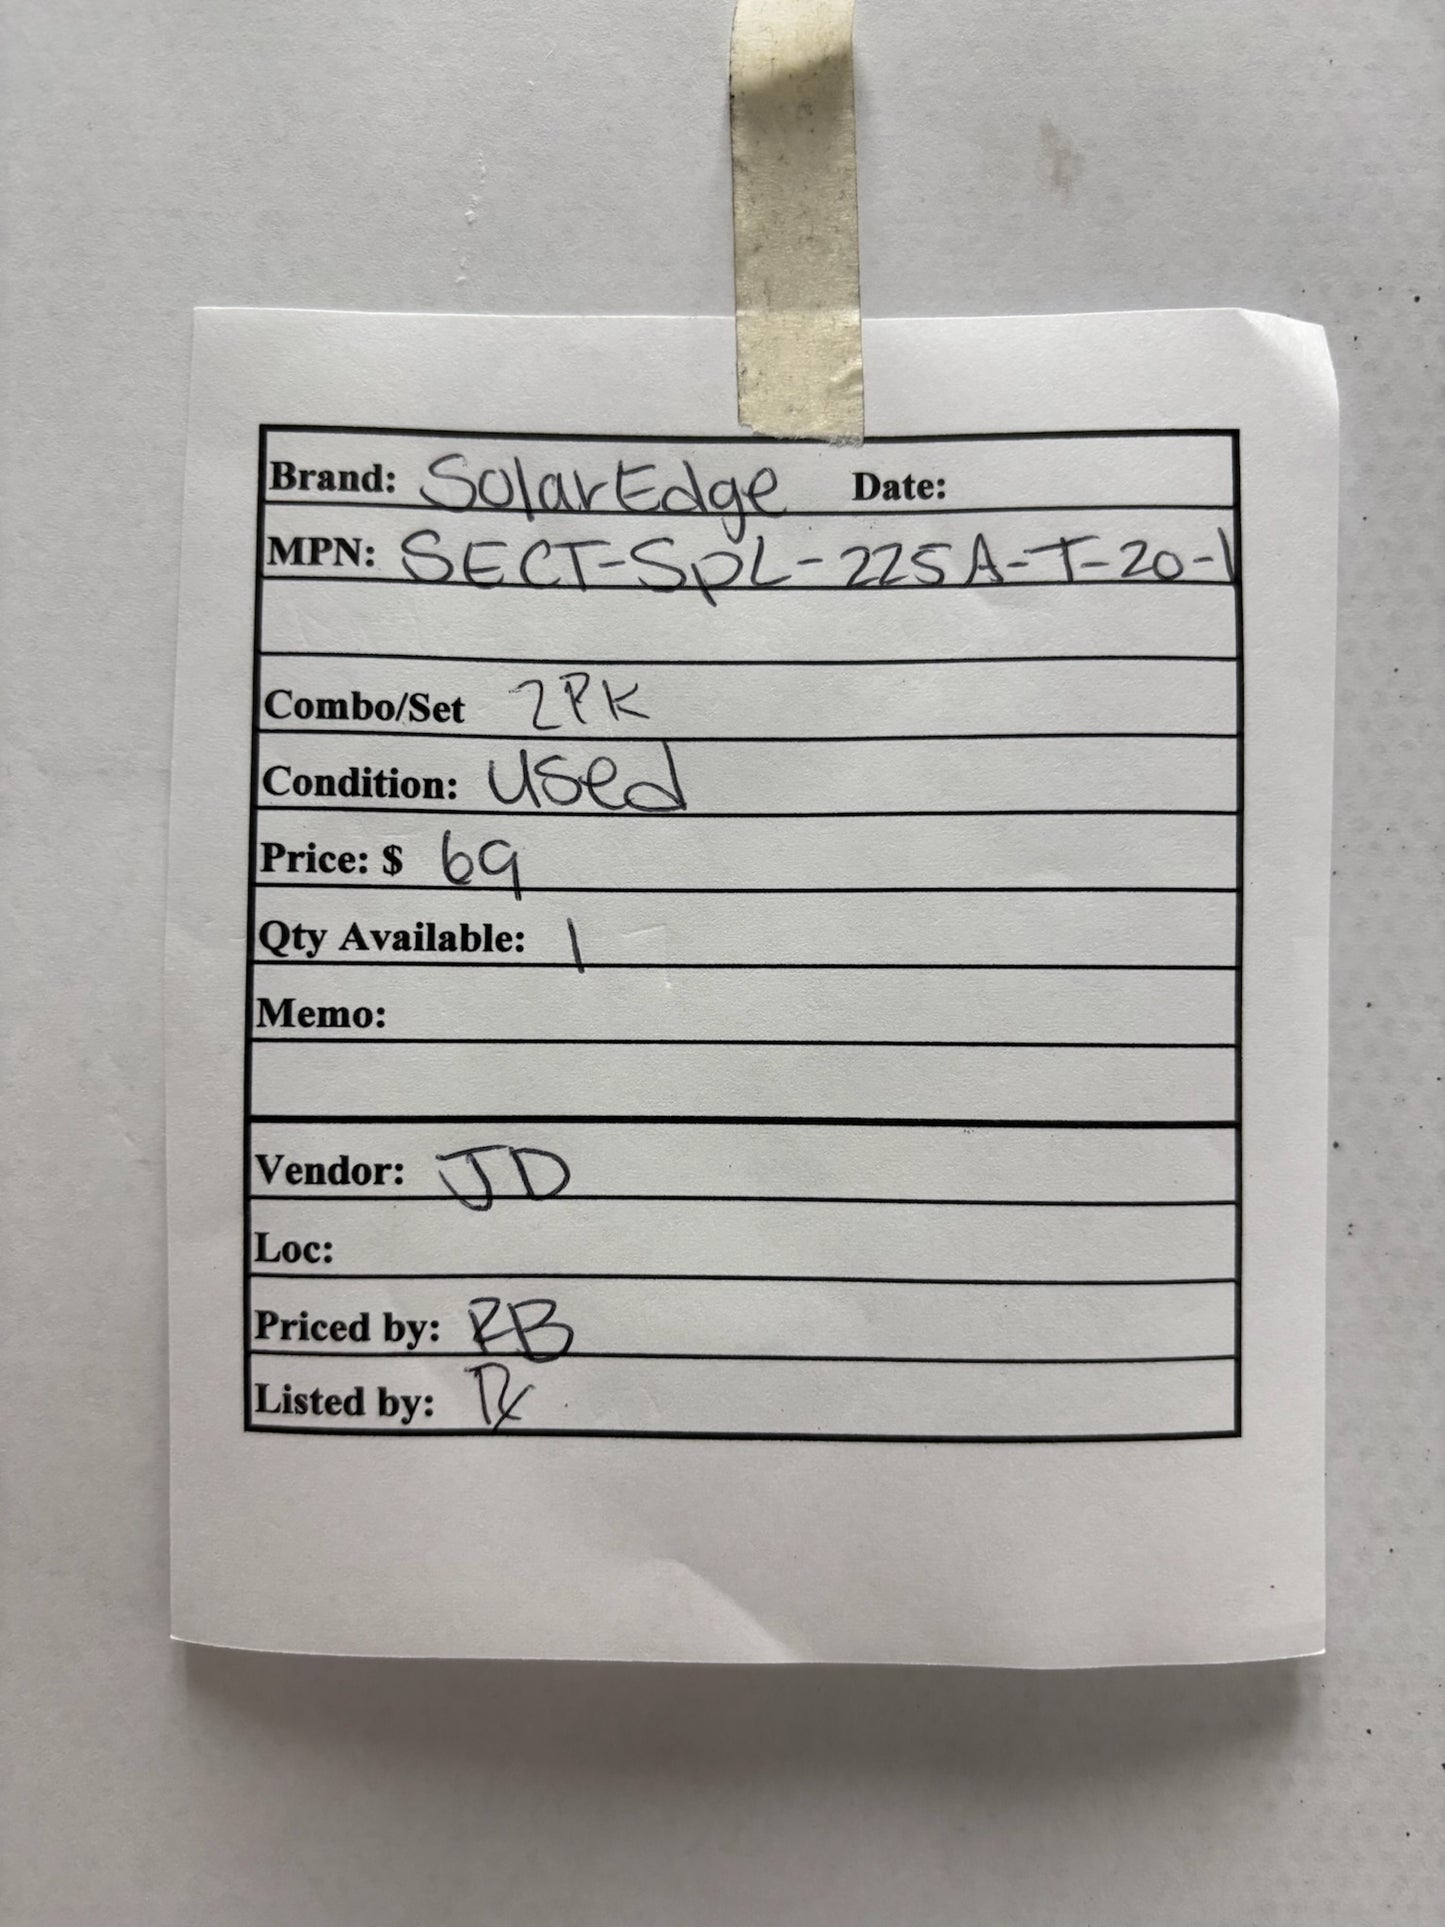 Brand: SolarEdge Date:
MPN: SECT-SPL-225A-T-20-1
Combo/Set 2PK
Condition: used
Price: $ 69
Qty Available: 1
Memo:
Vendor: JD
Loc:
Priced by: RB
Listed by: